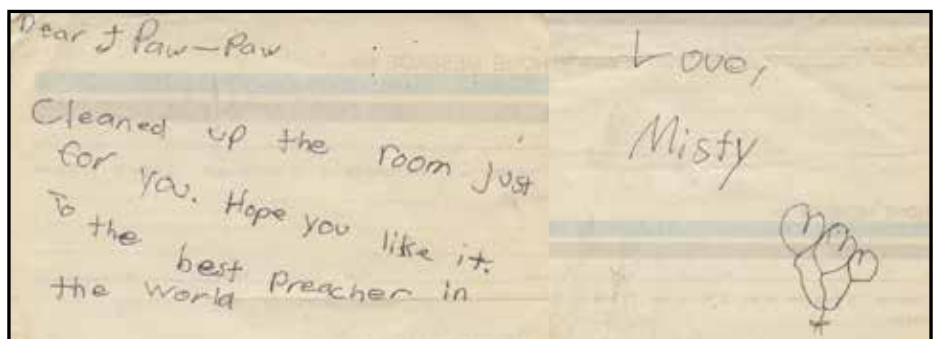 Dear Paw-Paw
Cleaned up the room just
for you. Hope you like it.
To the best Preacher in
the world
Love,
Misty